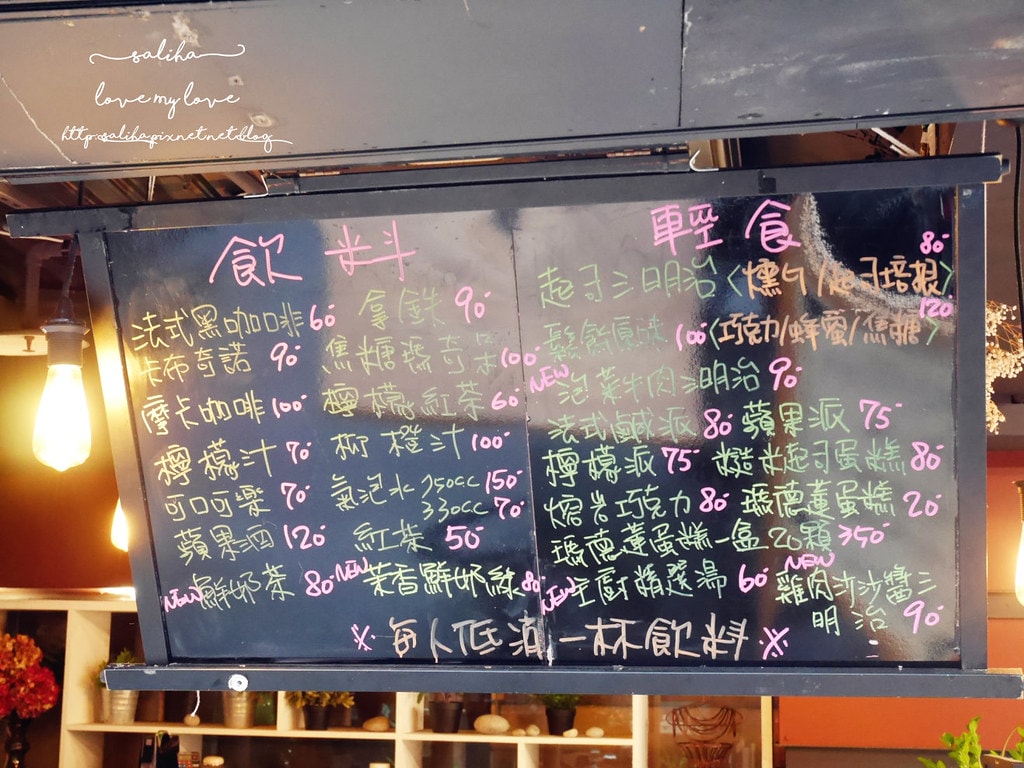 saliha
love my love
http:saliha.pixnet.net.blog
飲料
法式黑咖啡 60
拿鐵 90
卡布奇諾 90
焦糖瑪奇朵 100
摩卡咖啡 100
檸檬紅茶 60
檸檬汁 70
柳橙汁 100
可口可樂 70
氣泡水 750cc 150
330cc 70
蘋果酒 120
紅茶 50
NEW 鮮奶茶 80
NEW 茉香鮮奶綠 80
輕食
起司三明治〈燻勾/起司培根〉 80
鬆餅原味 100〈巧克力/蜂蜜/焦糖〉 120
NEW 泡菜牛肉三明治 90
法式鹹派 80 蘋果派 75
檸檬派 75 糙米起司蛋糕 80
熔岩巧克力 80 瑪德蓮蛋糕 20
瑪德蓮蛋糕一盒20顆 350
NEW 主廚精選湯 60
NEW 雞肉沙沙醬三
明治 90
※每人低消一杯飲料※